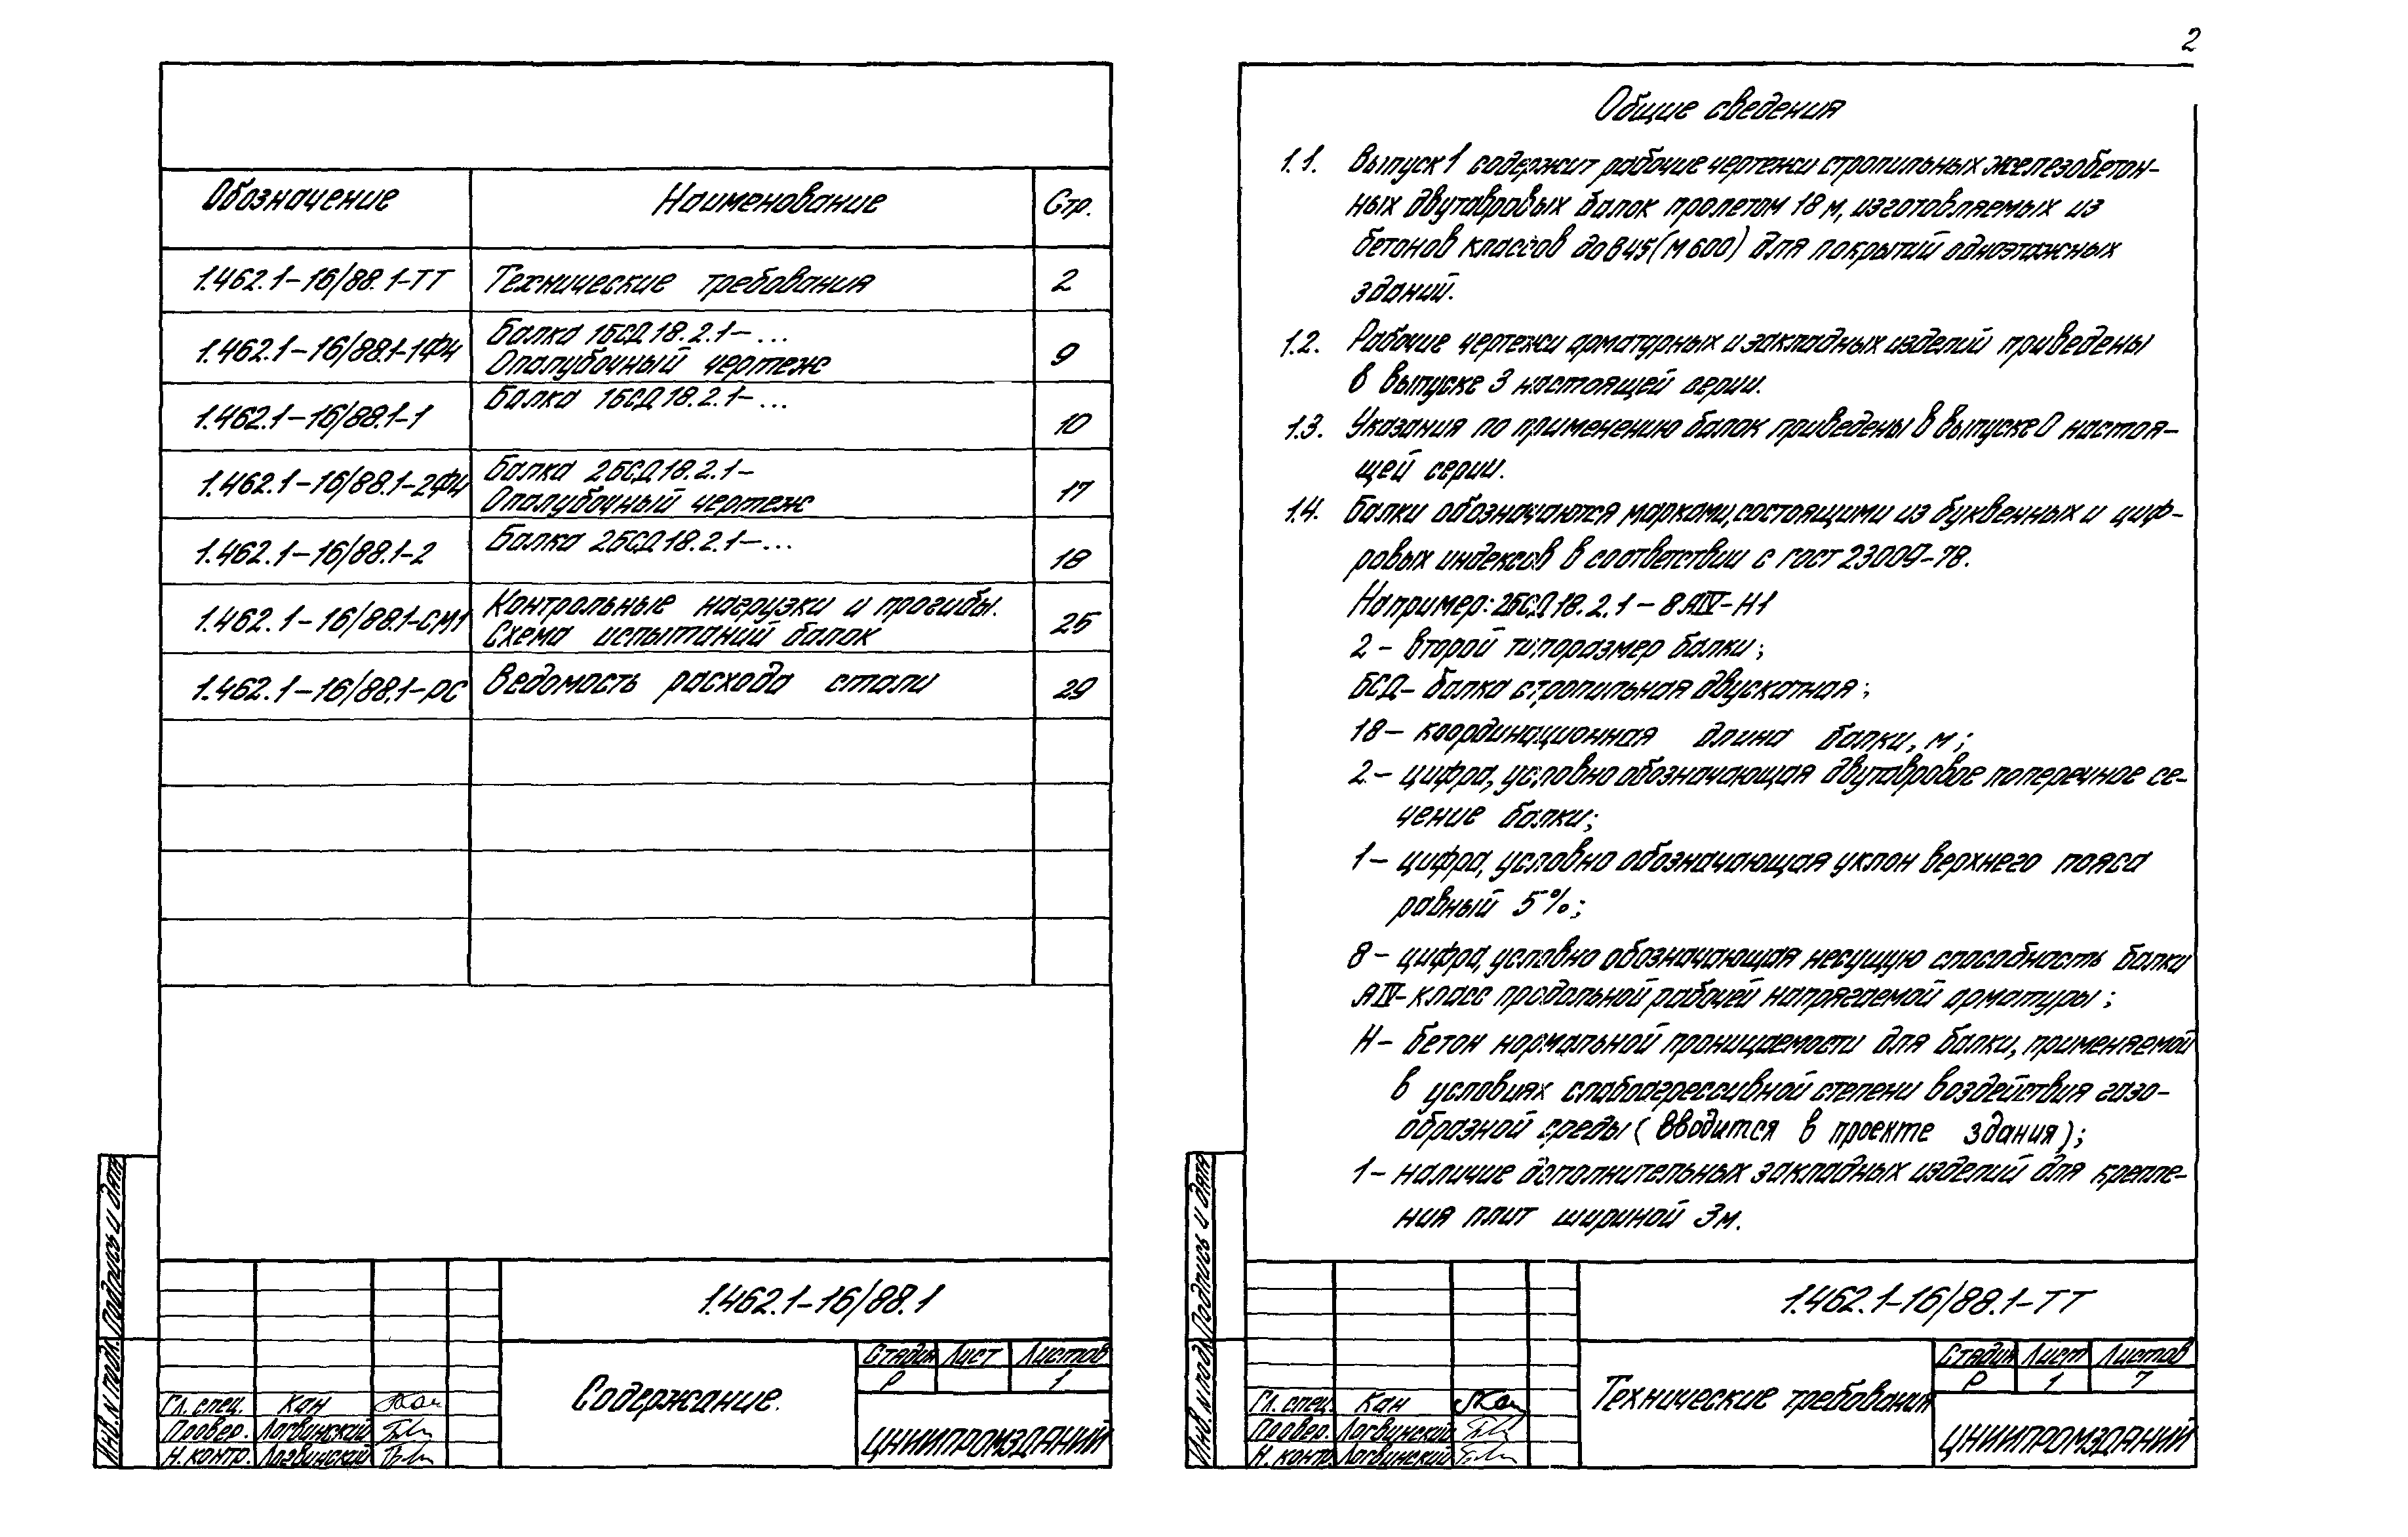 Обозначение Наименование Стр.
1.462.1-16/88.1-ТТ Технические требования 2
1.462.1-16/88.1-1ФЧ Балка 1БСД18.2.1-...
Опалубочный чертеж 9
1.462.1-16/88.1-1 Балка 1БСД18.2.1-... 10
1.462.1-16/88.1-2ФЧ Балка 2БСД18.2.1-
Опалубочный чертеж 17
1.462.1-16/88.1-2 Балка 2БСД18.2.1-... 18
1.462.1-16/88.1-СМ1 Контрольные нагрузки и прогибы.
Схема испытаний балок 25
1.462.1-16/88.1-РС Ведомость расхода стали 29
Подпись и дата
Инв. № подл.
1.462.1-16/88.1
Содержание.
Стадия Лист Листов
Р 1
ЦНИИПРОМЗДАНИЙ
Гл. спец. Кан
Провер. Логвинский
Н. контр. Логвинский
2
Общие сведения
1.1. Выпуск 1 содержит рабочие чертежи стропильных железобетон-
ных двутавровых балок пролетом 18 м, изготовляемых из
бетонов классов до В45 (М 600) для покрытий одноэтажных
зданий.
1.2. Рабочие чертежи арматурных и закладных изделий приведены
в выпуске 3 настоящей серии.
1.3. Указания по применению балок приведены в выпуске 0 настоя-
щей серии.
1.4. Балки обозначаются марками, состоящими из буквенных и циф-
ровых индексов в соответствии с ГОСТ 23009-78.
Например: 2БСД18.2.1-8АIV-Н1
2 - второй типоразмер балки;
БСД - балка стропильная двускатная;
18 - координационная длина балки, м;
2 - цифра, условно обозначающая двутавровое поперечное се-
чение балки;
1 - цифра, условно обозначающая уклон верхнего пояса
равный 5%;
8 - цифра, условно обозначающая несущую способность балки
АIV - класс продольной рабочей напрягаемой арматуры;
Н - бетон нормальной проницаемости для балки, применяемой
в условиях слабоагрессивной степени воздействия газо-
образной среды (вводится в проекте здания);
1 - наличие дополнительных закладных изделий для крепле-
ния плит шириной 3м.
Подпись и дата
Инв. № подл.
1.462.1-16/88.1-ТТ
Технические требования
Стадия Лист Листов
Р 1 7
ЦНИИПРОМЗДАНИЙ
Гл. спец. Кан
Провер. Логвинский
Н. контр. Логвинский